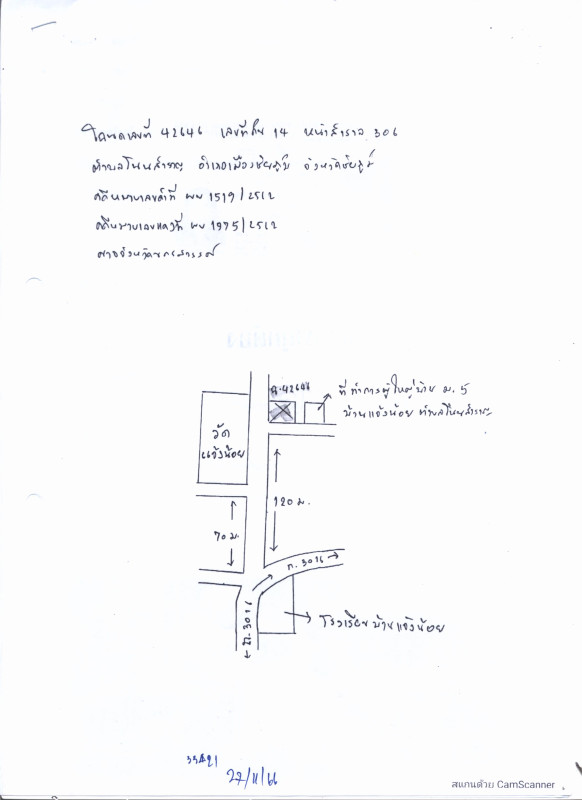 โฉนดเลขที่ 42646 เลขที่ดิน 14 หน้าสำรวจ 306
ตำบลโพนสำราญ อำเภอเมืองชัยภูมิ จังหวัดชัยภูมิ
คดีหมายเลขดำที่ ผบ 1519/2562
คดีหมายเลขแดงที่ ผบ 1975/2562
ศาลจังหวัดนครสวรรค์
ฉ.42646
ที่ทำการผู้ใหญ่บ้าน ม.5
บ้านแจ้งน้อย
วัด
แจ้งน้อย
120 ม.
70 ม.
ถ.3016
ถ.3016
โรงเรียนบ้านแจ้งน้อย
27/11/66
สแกนด้วย CamScanner